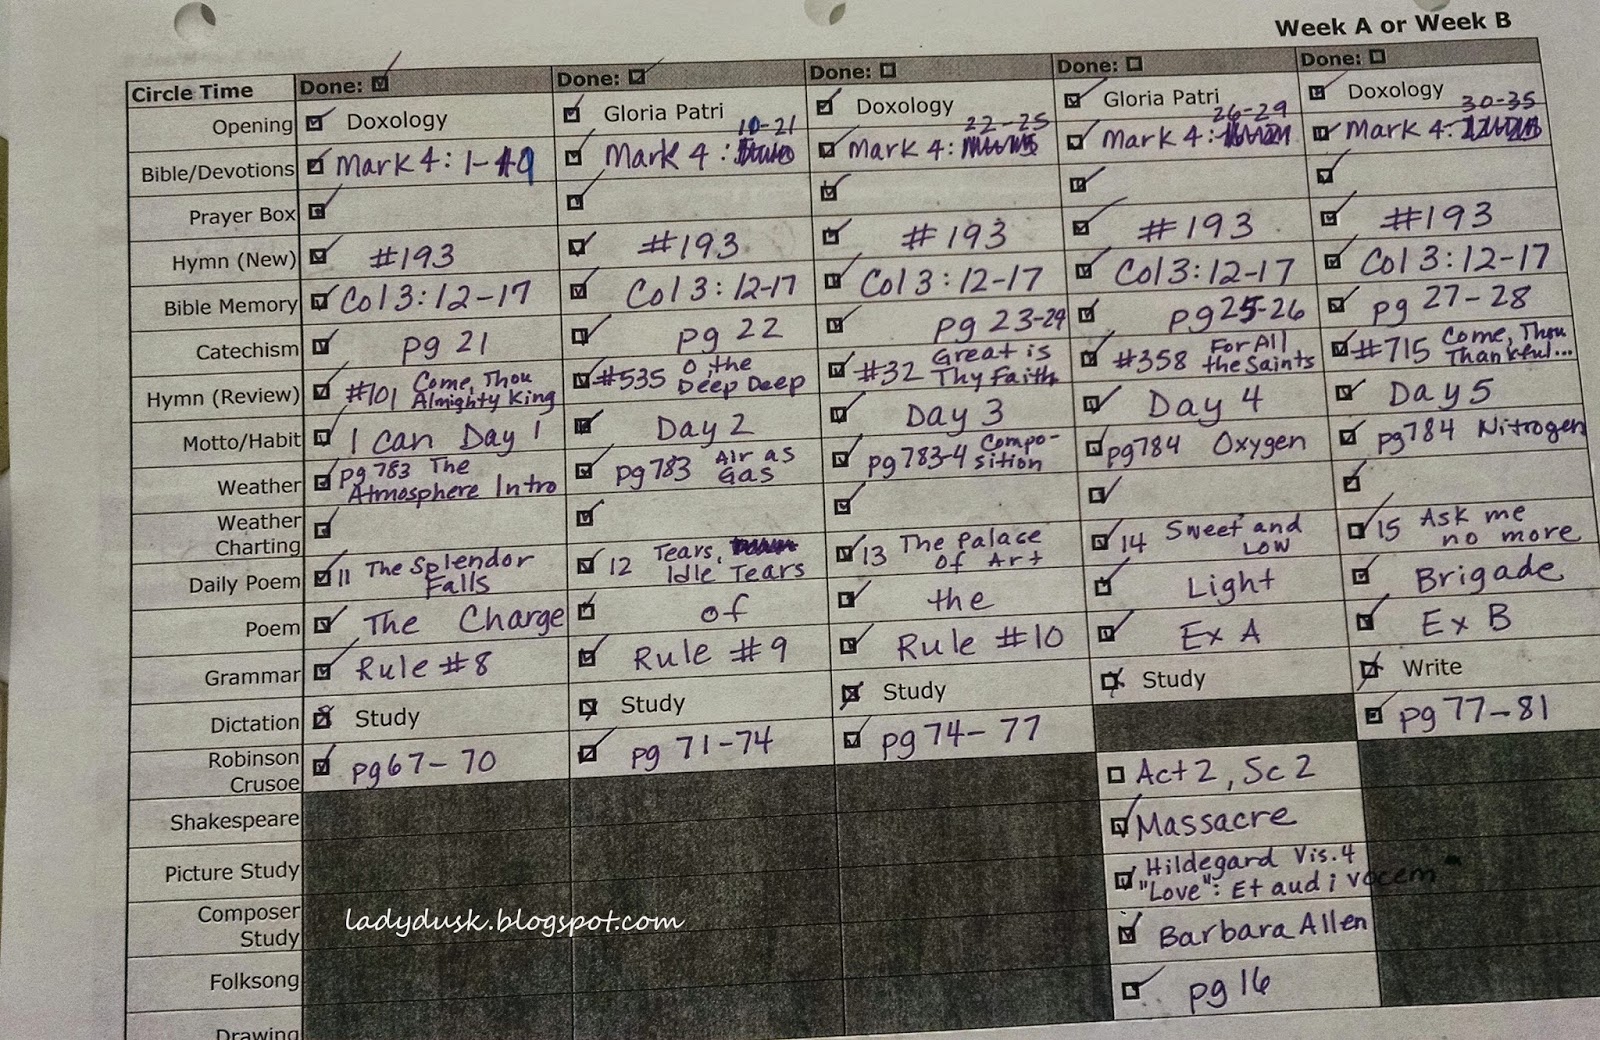 Week A or Week B
Circle Time Done: Done: Done: Done: Done:
Opening Doxology Gloria Patri Doxology Gloria Patri Doxology
10-21 22-25 26-29 30-35
Bible/Devotions Mark 4: 1-9 Mark 4: Mark 4: Mark 4: Mark 4:
Prayer Box
Hymn (New) #193 #193 #193 #193 #193
Bible Memory Col 3: 12-17 Col 3: 12-17 Col 3: 12-17 Col 3: 12-17 Col 3: 12-17
Catechism pg 21 pg 22 pg 23-24 pg 25-26 pg 27-28
Hymn (Review) #101 Come, Thou #535 O, the #32 Great is #358 For All #715 Come, Thou
Almighty King Deep Deep Thy Faith the Saints Thankful...
Motto/Habit I can Day 1 Day 2 Day 3 Day 4 Day 5
Weather pg 783 The pg 783 Air as pg 783-4 Compo- pg 784 Oxygen pg 784 Nitrogen
Atmosphere Intro Gas sition
Weather
Charting
Daily Poem 11 The Splendor 12 Tears, 13 The Palace 14 Sweet and 15 Ask me
Falls Idle Tears of Art Low no more
Poem The Charge of the Light Brigade
Grammar Rule #8 Rule #9 Rule #10 Ex A Ex B
Dictation Study Study Study Study Write
Robinson pg 67-70 pg 71-74 pg 74-77 pg 77-81
Crusoe
Shakespeare Act 2, Sc 2
Picture Study Massacre
Composer Hildegard Vis. 4
Study "Love": Et audi vocem
Folksong Barbara Allen
Drawing pg 16
ladydusk.blogspot.com